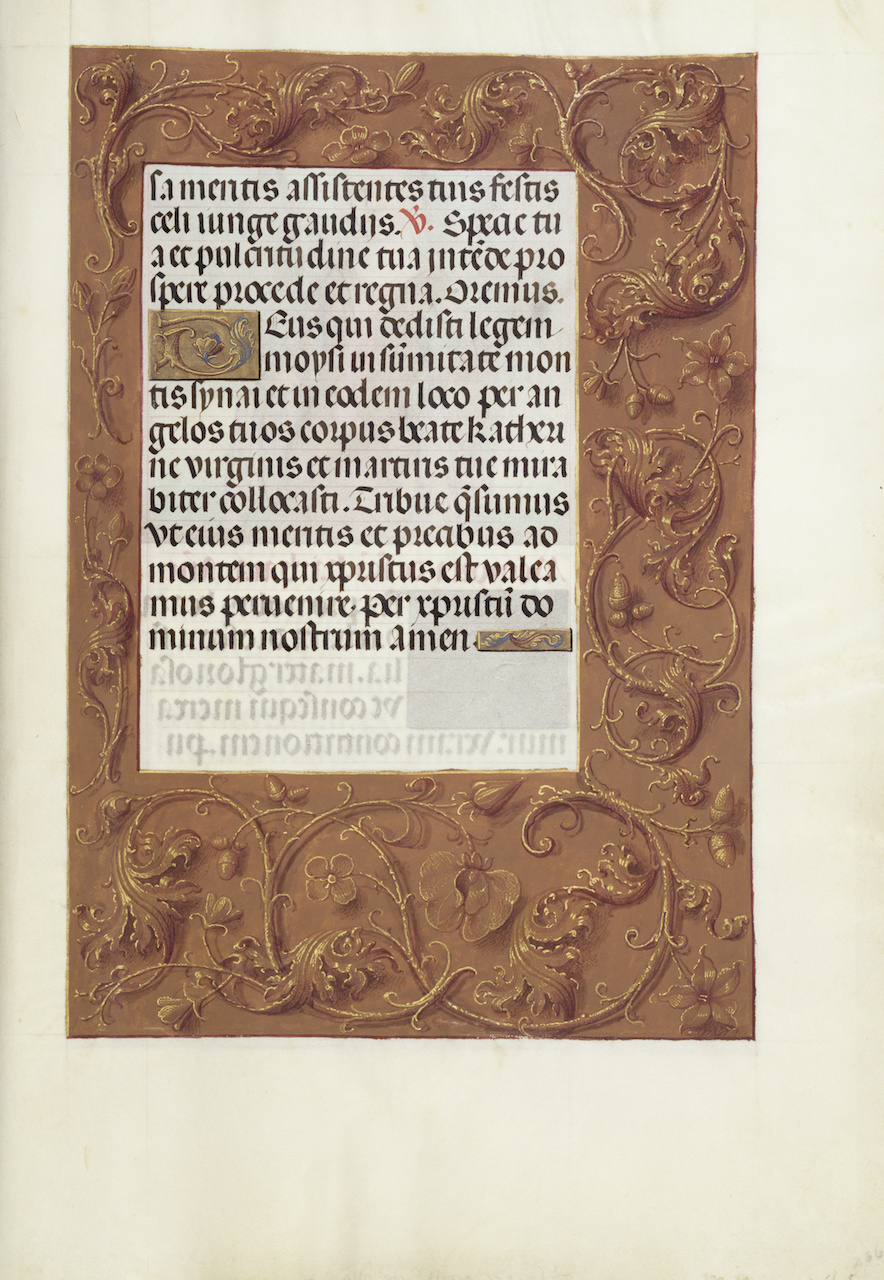 sa meritis assistentes tuis festis
celi iunge gaudiis. V̕. Specie tu
a et pulcritudine tua intēde pro
spere procede et regna. Oremus.
Deus qui dedisti legem
moysi in sūmitate mon
tis synai et in eodem loco per an
gelos tuos corpus beate Katheri
ne virginis et martiris tue mira
biter collocasti. Tribue q̄sumus
vt eius meritis et precibus ad
montem qui xpristus est valea
mus peruenire. Per xpristū do
minum nostrum amen.